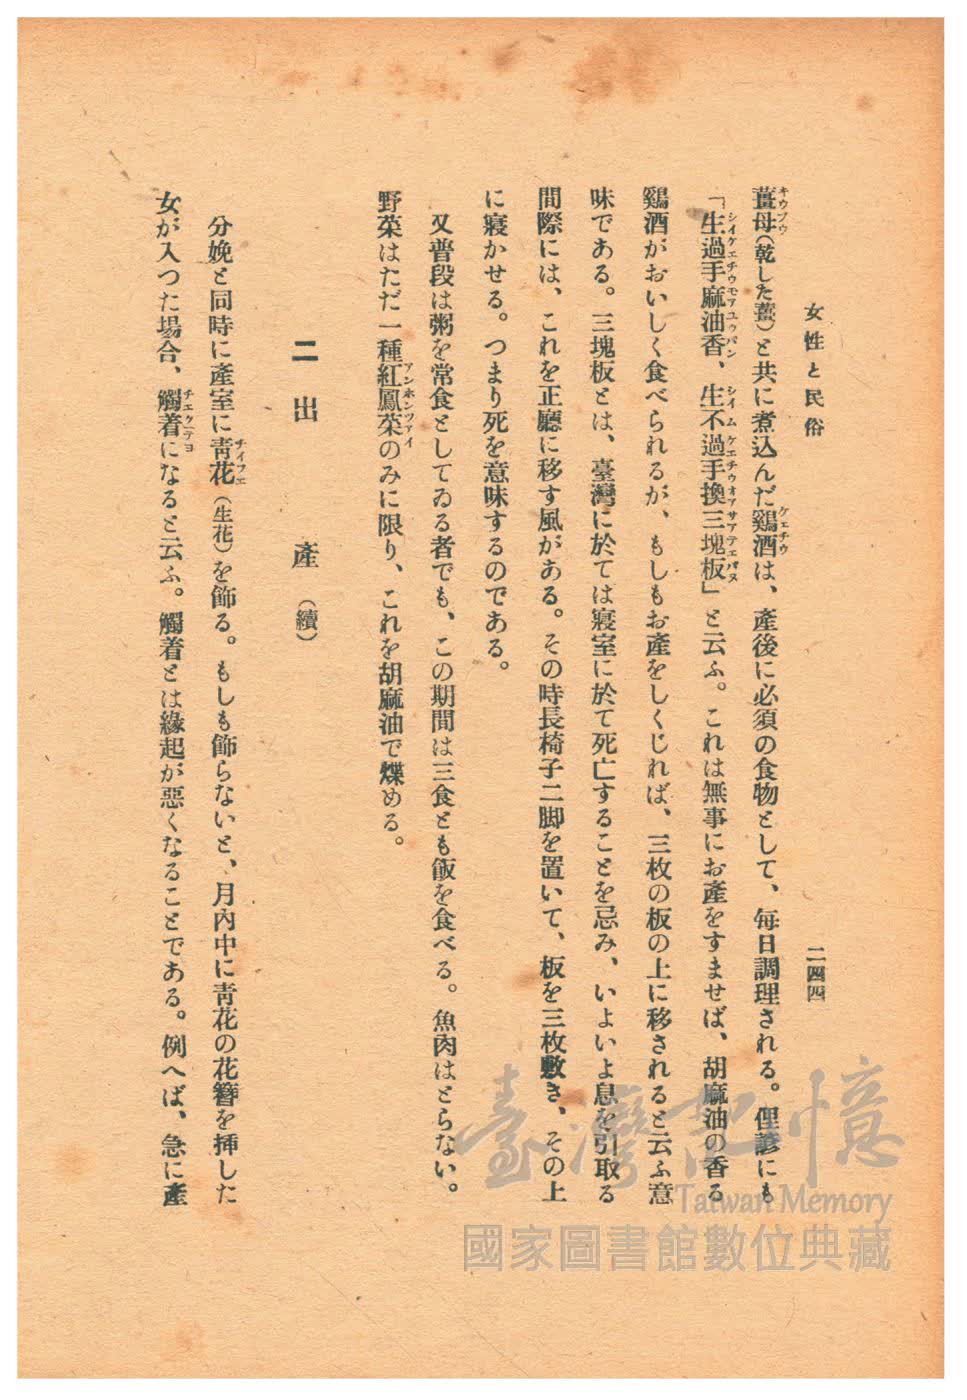 女性と民俗
二四四
薑母（乾した薑）と共に煮込んだ鷄酒は、産後に必須の食物として、毎日調理される。俚諺にも
「生過手麻油香、生不過手換三塊板」と云ふ。これは無事にお産をすませば、胡麻油の香る
鷄酒がおいしく食べられるが、もしもお産をしくじれば、三枚の板の上に移されると云ふ意
味である。三塊板とは、臺灣に於ては寢室に於て死亡することを忌み、いよいよ息を引取る
間際には、これを正廳に移す風がある。その時長椅子二脚を置いて、板を三枚敷き、その上
に寢かせる。つまり死を意味するのである。
又普段は粥を常食としてゐる者でも、この期間は三食とも飯を食べる。魚肉はとらない。
野菜はただ一種紅鳳菜のみに限り、これを胡麻油で煠める。
二 出 産 （續）
分娩と同時に産室に靑花（生花）を飾る。もしも飾らないと、月內中に靑花の花簪を挿した
女が入つた場合、觸着になると云ふ。觸着とは緣起が惡くなることである。例へば、急に產
臺灣記憶
Taiwan Memory
國家圖書館數位典藏